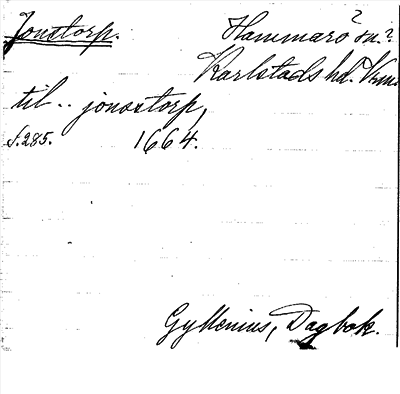 Jonstorp. Hammarö? sn.?
Karlstads hd. Vrml
til .. jonsstorp,
s. 285. 1664.
Gyllenius, Dagbok.